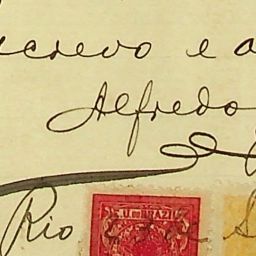 screvo e a
Alfredo
Rio
E. U. DO BRAZIL